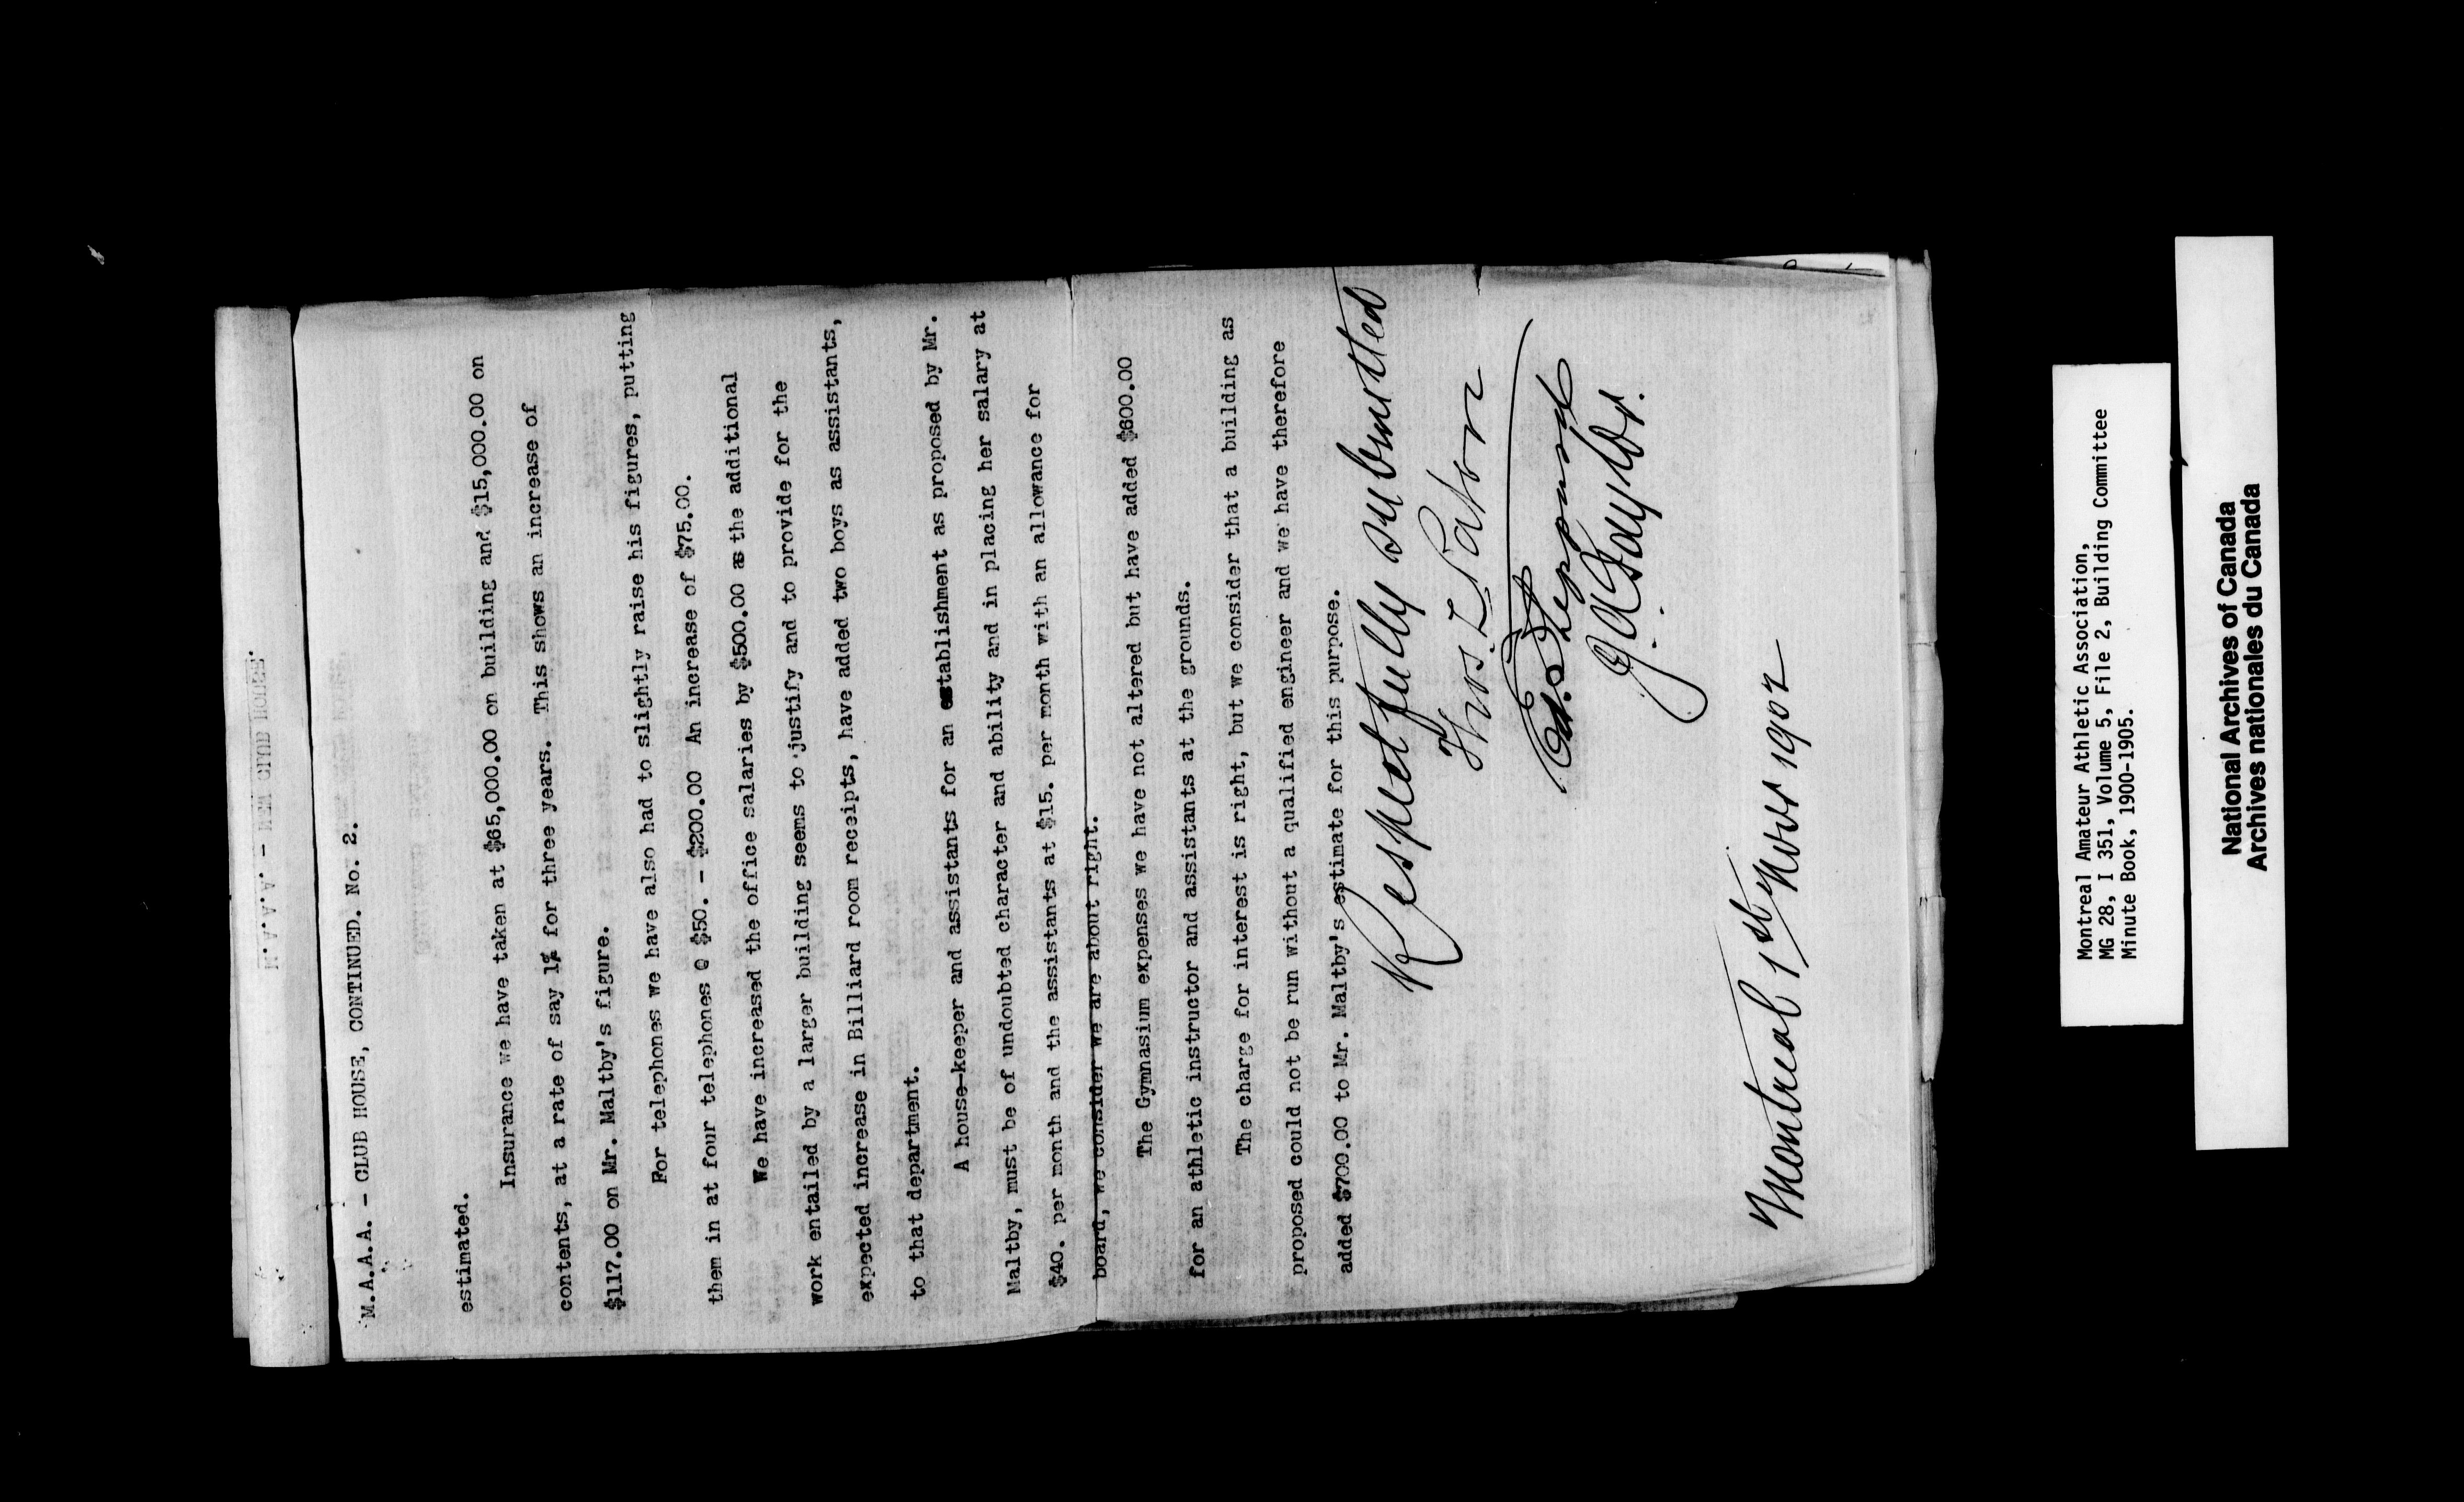 M.A.A.A. - CLUB HOUSE, CONTINUED. No. 2.
estimated.
Insurance we have taken at $65,000.00 on building and $15,000.00 on
contents, at a rate of say 1% for three years. This shows an increase of
$117.00 on Mr. Maltby's figure.
For telephones we have also had to slightly raise his figures, putting
them in at four telephones @ $50. - $200.00 An increase of $75.00.
We have increased the office salaries by $500.00 as the additional
work entailed by a larger building seems to justify and to provide for the
expected increase in Billiard room receipts, have added two boys as assistants,
to that department.
A house-keeper and assistants for an establishment as proposed by Mr.
Maltby, must be of undoubted character and ability and in placing her salary at
$40. per month and the assistants at $15. per month with an allowance for
board, we consider we are about right.
The Gymnasium expenses we have not altered but have added $600.00
for an athletic instructor and assistants at the grounds.
The charge for interest is right, but we consider that a building as
proposed could not be run without a qualified engineer and we have therefore
added $700.00 to Mr. Maltby's estimate for this purpose.
Respectfully submitted
Thos. L Paton
Ed. Sheppard
J. A. Taylor.
Montreal 1st Novr 1902
Montreal Amateur Athletic Association,
MG 28, I 351, Volume 5, File 2, Building Committee
Minute Book, 1900-1905.
National Archives of Canada
Archives nationales du Canada